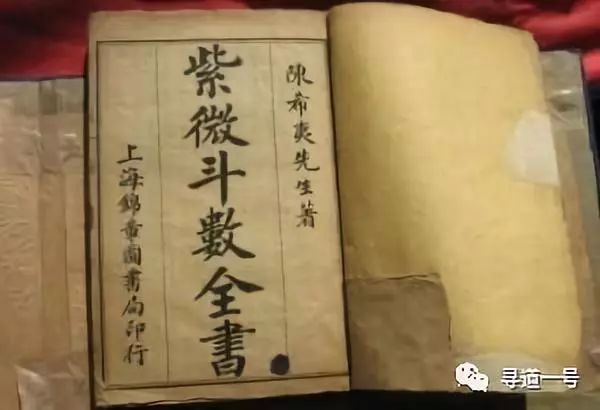 陳希夷先生著
紫微斗數全書
上海錦章圖書局印行
寻道一号